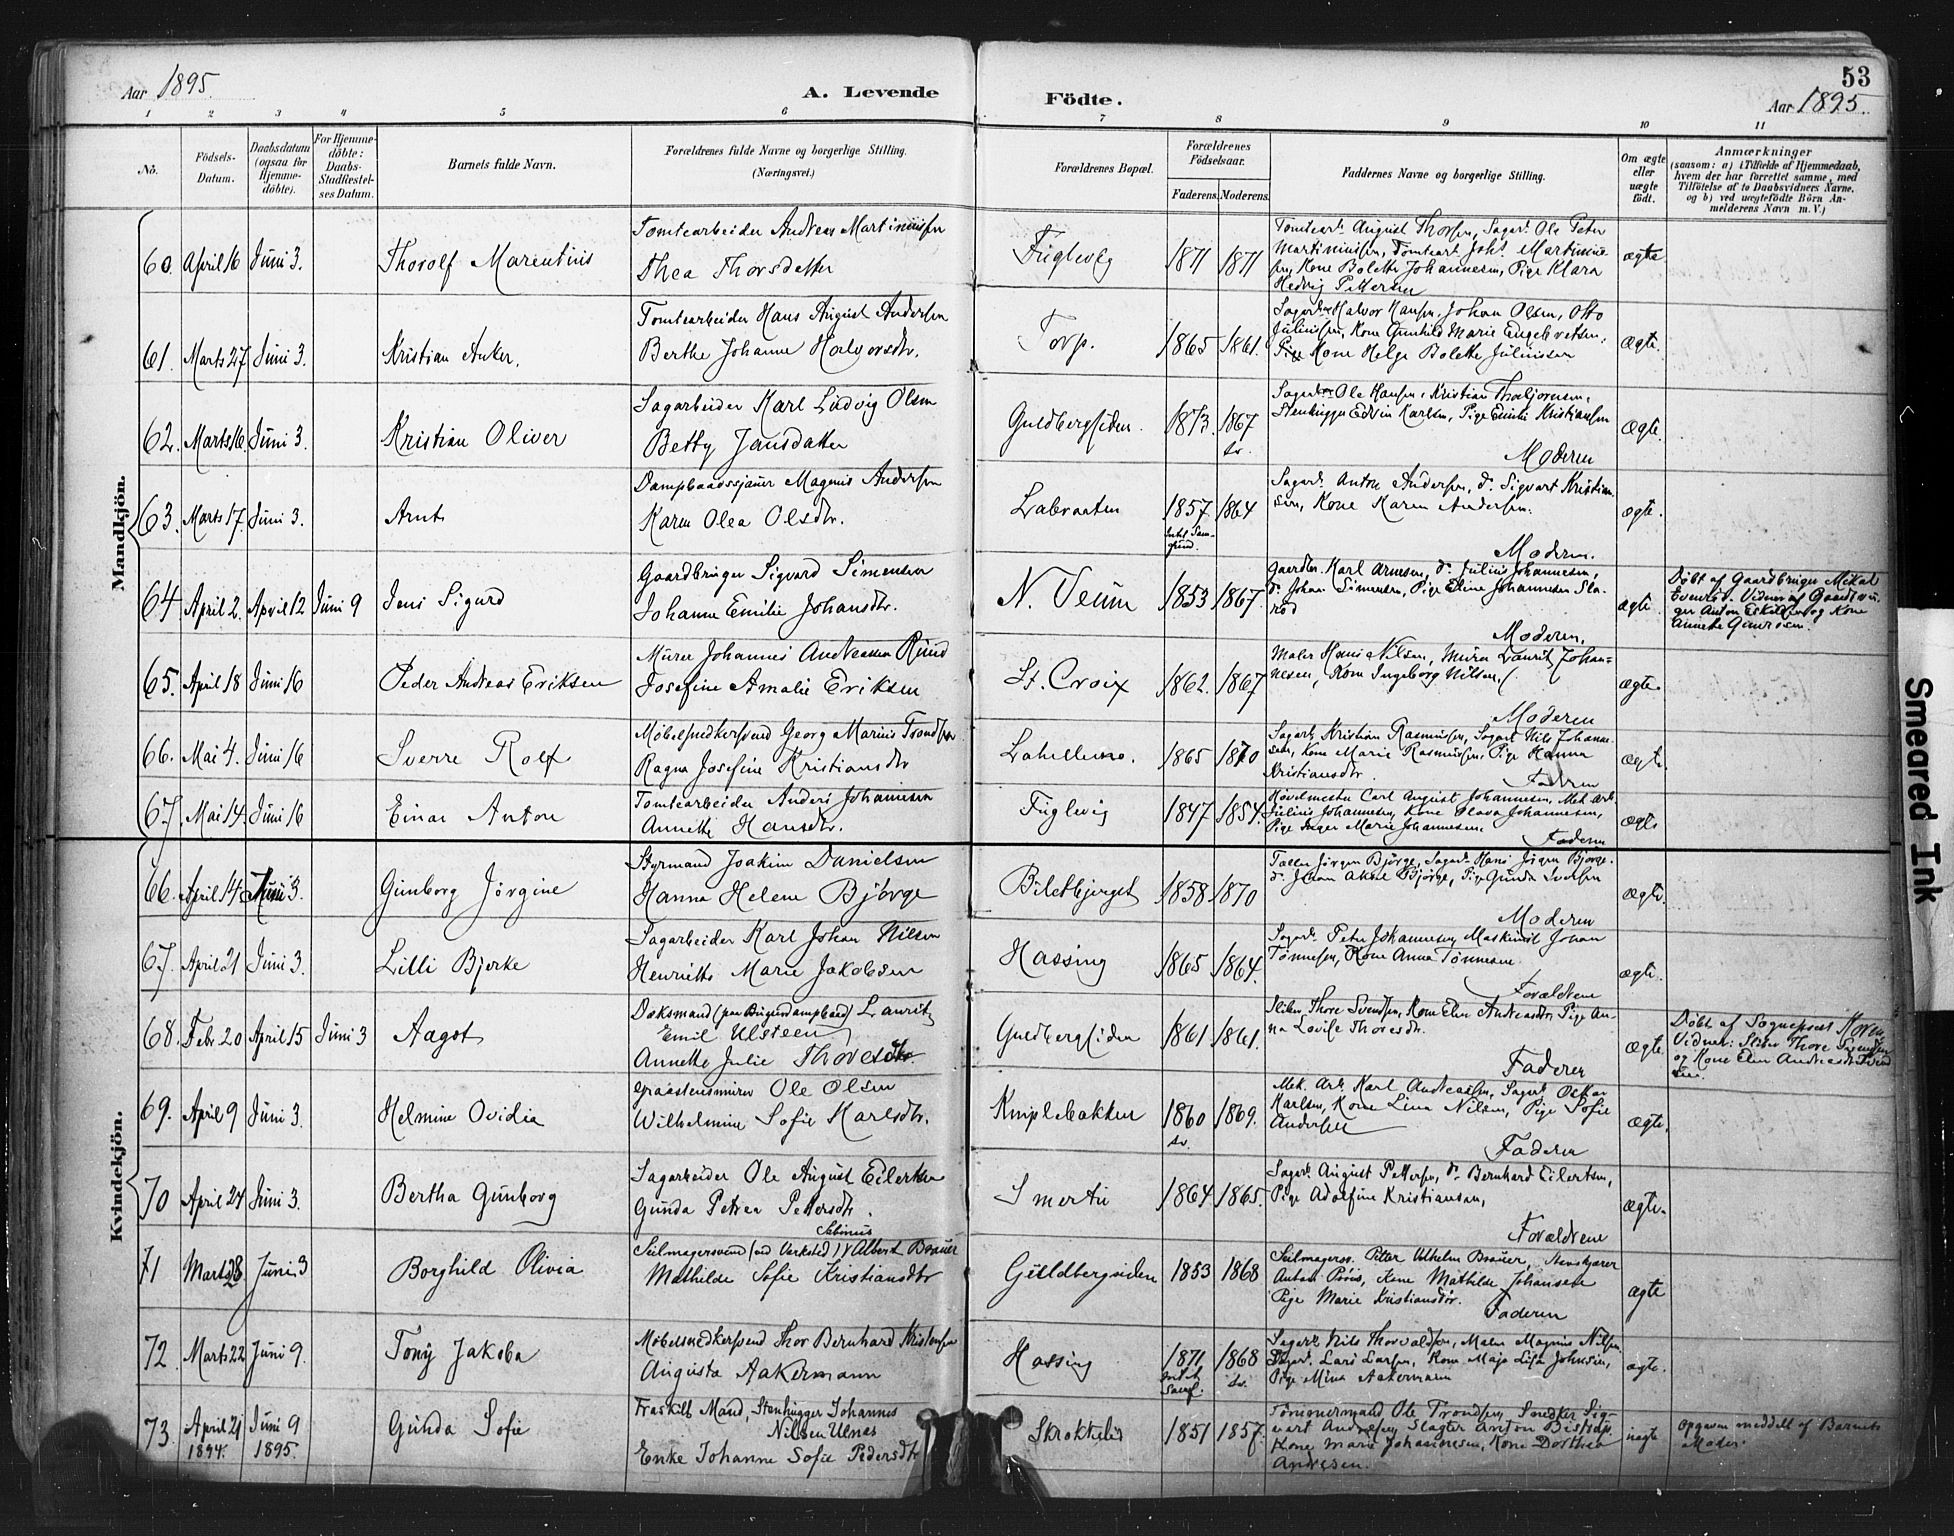 53
Aar 1895.
A. Levende
Födte.
Aar 1895.
1 2 3 4 5 6 7 8 9 10 11
No.
Födsels-Datum.
Daabsdatum (ogsaa for Hjemme-döbte).
For Hjemme-döbte: Daabs-Stadfæstel-ses Datum.
Barnets fulde Navn.
Forældrenes fulde Navne og borgerlige Stilling. (Næringsvei.)
Forældrenes Bopæl.
Forældrenes Födselsaar.
Faderens. Moderens.
Faddernes Navne og borgerlige Stilling.
Om ægte eller uægte födt.
Anmærkninger
(saasom: a) i Tilfælde af Hjemmedaab,
hvem der har forrettet samme, med
Tilföielse af to Daabsvidners Navne,
og b) ved uægtefödte Börn An-
melderens Navn m. V.)
Mandkjön.
60. April 16 Juni 3. Thorolf Marentius
Tomtearbeider Andreas Martiniussen
Thea Thorsdatter
Fuglevig 1871 1871
Tomtearb. August Thorsen, Sagarb. Ole Peter
Martiniussen, Tomtearb. Johs. Martinius
sen, Kone Bolette Johannesen, Pige Klara
Hedvig Pettersen
ægte
61. Marts 27 Juni 3. Kristian Anker.
Tomtearbeider Hans August Andersen
Berthe Johanne Halvorsdtr.
Torp. 1865 1861.
Sagarb. Halvor Hansen, Johan Olsen, Otto
Juliussen, Kone Gunhild Marie Engebretsen,
Kone Helge Bolette Juliussen
ægte.
62. Marts 16. Juni 3. Kristian Oliver
Sagarbeider Karl Ludvig Olsen
Betty Jansdatter
Guldbergsiden. 1873. 1867 sv.
Sagarb. Ole Hansen, Kristian Thorbjørnsen,
Stenhugger Edvin Karlsen, Pige Emilie Kristiansen
Moderen
ægte.
63. Marts 17. Juni 3. Arnt
Dampbaadssjauer Magnus Andersen
Karen Olea Olsdtr.
Labraaten 1857 1864
Sagarb. Anton Andersen, do. Sigvart Kristian
sen, Kone Karen Andersen.
Moderen.
ægte.
64. April 2. April 12 Juni 9 Jens Sigurd
Gaardbruger Sigvard Simensen
Johanne Emilie Johansdtr.
N. Veum 1853 1867.
Gaardbr. Karl Arnesen, do. Julius Johannesen,
do. Johan Simensen, Pige Eline Johannesen
Moderen.
ægte
Døbt af Gaardbruger Mikal
Evensød. Vidner af Gaardbru-
ger Anton Eskildsen og Kone
Annette
65. April 18 Juni 16 Peder Andreas Eriksen
Murer Johannes Andreassen Rund
Josefine Amalie Eriksen
St. Croix 1862. 1867
Maler Hans Nilsen, Murer Laurits Johan=
nesen, Kone Ingeborg Nilsen.
Moderen
ægte.
66. Mai 4. Juni 16 Sverre Rolf
Møbelsnedkersvend Georg Marius Trondsen
Ragna Josefine Kristiansdtr
Lahellemo. 1865 1870
Sagarb. Kristian Rasmussen, Sagarb. Nils Johanne-
sen, Kone Marie Rasmussen, Pige Hanna
Kristiansdtr.
Faderen
ægte.
67. Mai 14. Juni 16 Einar Anton
Tomtearbeider Anders Johannesen
Annette Hansdtr.
Fuglevig 1847 1854.
Høvelmester Carl August Johannesen, Mek. Arb.
Julius Johannesen, Kone Olava Johannesen,
Pige Inger Marie Johannesen.
Faderen
ægte
Kvindekjön.
66. April 14. Juni 3. Gunborg Jørgine
Styrmand Joakim Danielsen
Hanna Helene Bjørge
Biletbjerget 1858 1870
Jørgen Bjørge, Sagarb. Hans Jørgen Bjørge.
do. Johan Bjørge, Pige Gunda Iversen
Moderen
ægte.
67. April 21 Juni 3. Lilli Bjerke
Sagarbeider Karl Johan Nilsen
Henriette Marie Jakobsen
Hassing 1865 1864.
Sagarb. Peter Johannesen, Maskinist Johan
Tønnesen, Kone Anna Tønnesen
Forældrene
ægte.
68. Febr 20 April 15 Juni 3 Aagot
Dæksmand (paa Bugserdampbaad) Laurits
Emil Ulsteen
Annette Julie Thoresdtr
Guldbergsiden 1861 1861.
Sliber Thore Svendsen, Kone Elen Andreasdtr, Pige An-
na Lovise Thoresdtr.
Faderen
ægte.
Døbt af Sogneprest Horn
Vidner: Sliber Thore Svendsen
og Kone Elen Andreasdtr Svend
sen.
69. April 9 Juni 3. Helmine Ovidia
Graastensmurer Ole Olsen
Wilhelmine Sofie Karlsdtr.
Kniplebakken 1860 sv. 1869.
Mek. Arb. Karl Andreassen, Sagarb. Oskar
Karlsen, Kone Lina Nilsen, Pige Sofie
Andersen
Faderen
ægte.
70 April 24 Juni 3. Bertha Gunborg
Sagarbeider Ole August Eilertsen
Gunda Petrea Pettersdtr.
Smertu 1864 1865.
Sagarb. August Pettersen, do. Bernhard Eilertsen,
Pige Adolfine Kristiansen,
Forældrene
ægte.
71 Marts 28. Juni 3 Borghild Olivia
Sabinus
Seilmagersvend (ved Verksted) Albert Brauer
Mathilde Sofie Kristiansdtr
Guldbergsiden 1853 1868
Seilmagersv. Petter Vilhelm Brauer, Stenskjærer
Anton Kone Mathilde Johansen
Pige Marie Kristiansdtr.
Faderen
ægte
72 Marts 22 Juni 9. Tony Jakoba
Møbelsnedkersvend Thor Bernhard Kristensen
Augusta Aakermann
Hassing 1871. 1868 sv.
Sagarb. Nils Thorvaldsen, Maler Magnus Nilsen
Sagarb. Lars Larsen, Kone Maja Lisa Johnsen,
Pige Mina Aakermann
ægte.
73. April 21 1894. Juni 9 1895. Gunda Sofie
Fraskilt Mand, Stenhugger Johannes
Nilsen Ulnas
Enke Johanne Sofie Pedersdtr
Skrokkelid 1851 1857.
Tømmermand Ole Trondsen, Snedker Sig-
vart Andresen, Slagter Anton Bistrup
Kone Marie Johannesen, Kone Dorthea
Andresen.
uægte
Opgaven meddelt af Barnets
Moder.
Smeared Ink